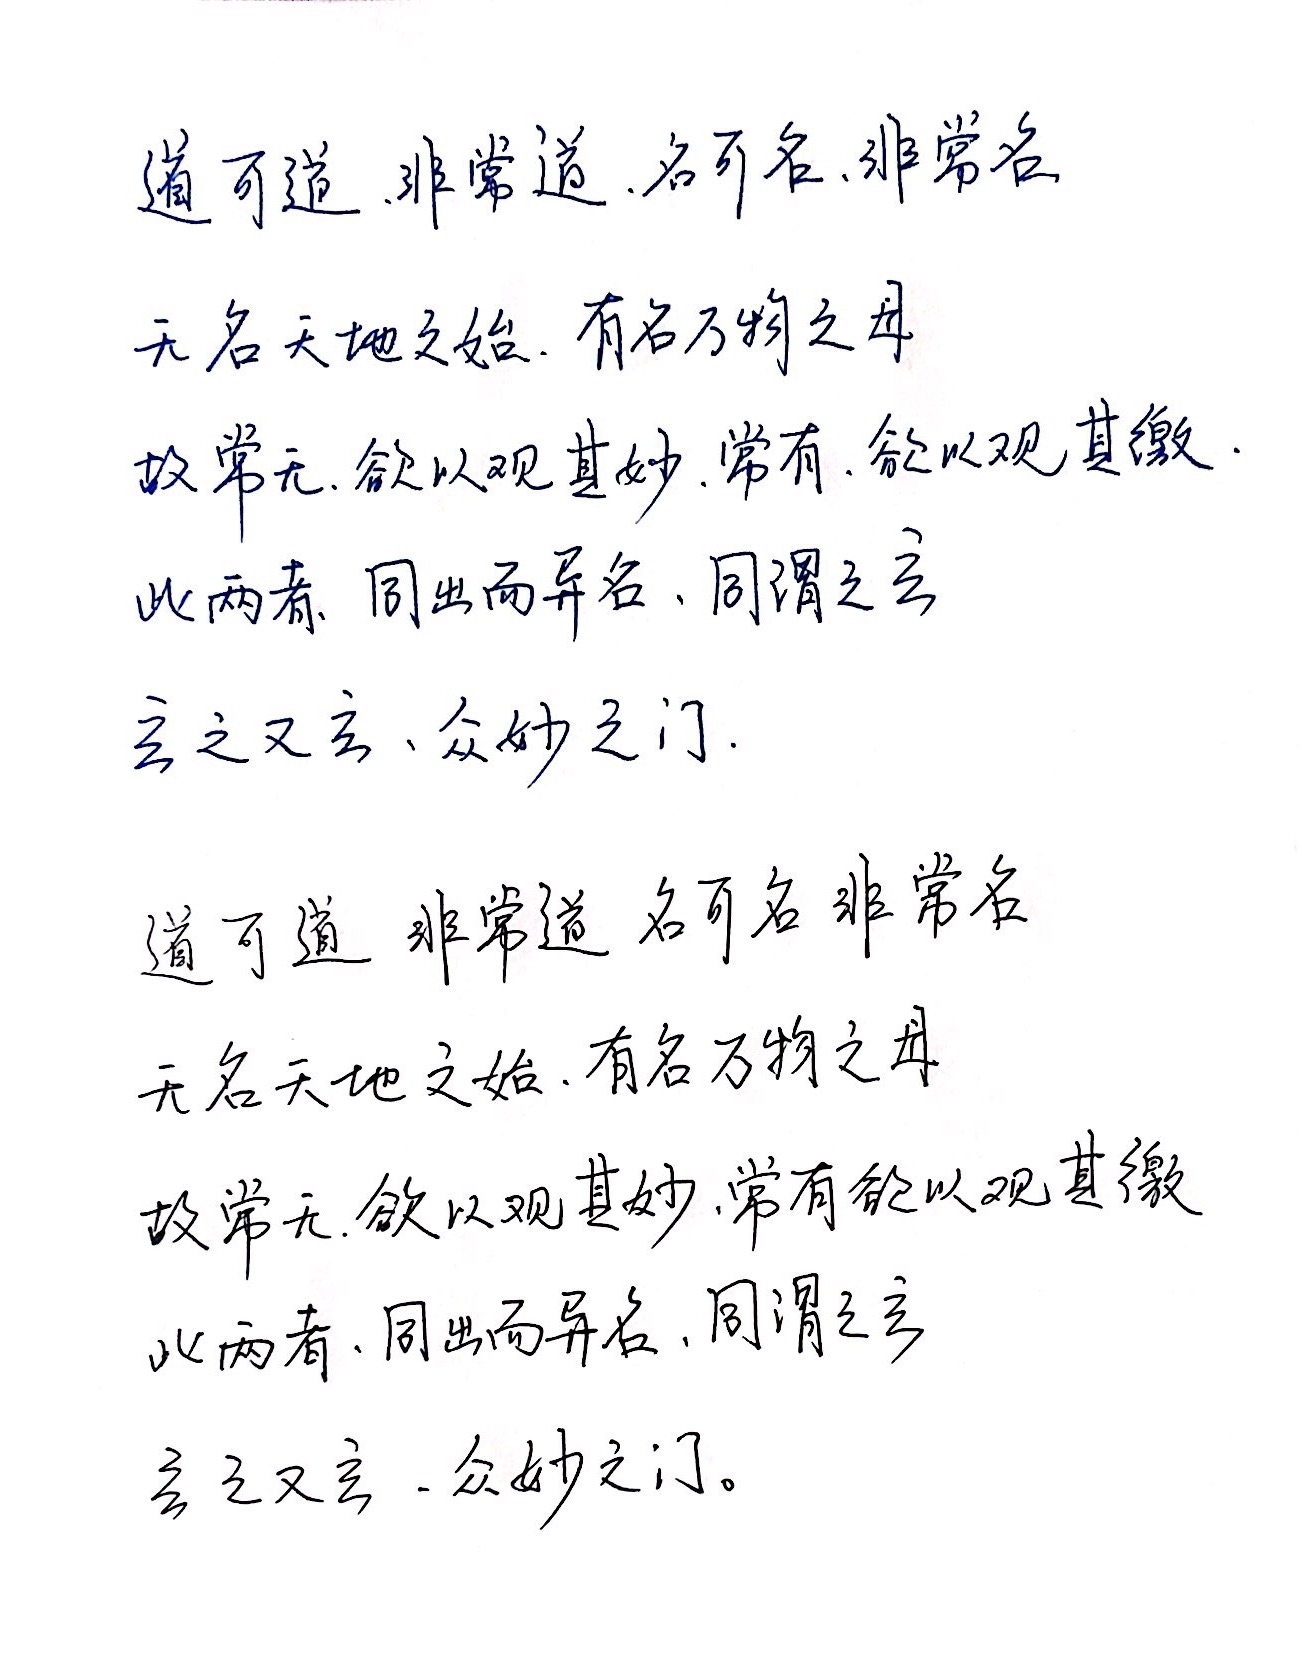 道可道、非常道、名可名、非常名
无名天地之始.有名万物之母
故常无.欲以观其妙.常有.欲以观其缴.
此两者、同出而异名、同谓之玄
玄之又玄、众妙之门.
道可道 非常道 名可名 非常名
无名天地之始.有名万物之母
故常无.欲以观其妙.常有欲以观其缴
此两者、同出而异名、同谓之玄
玄之又玄、众妙之门。